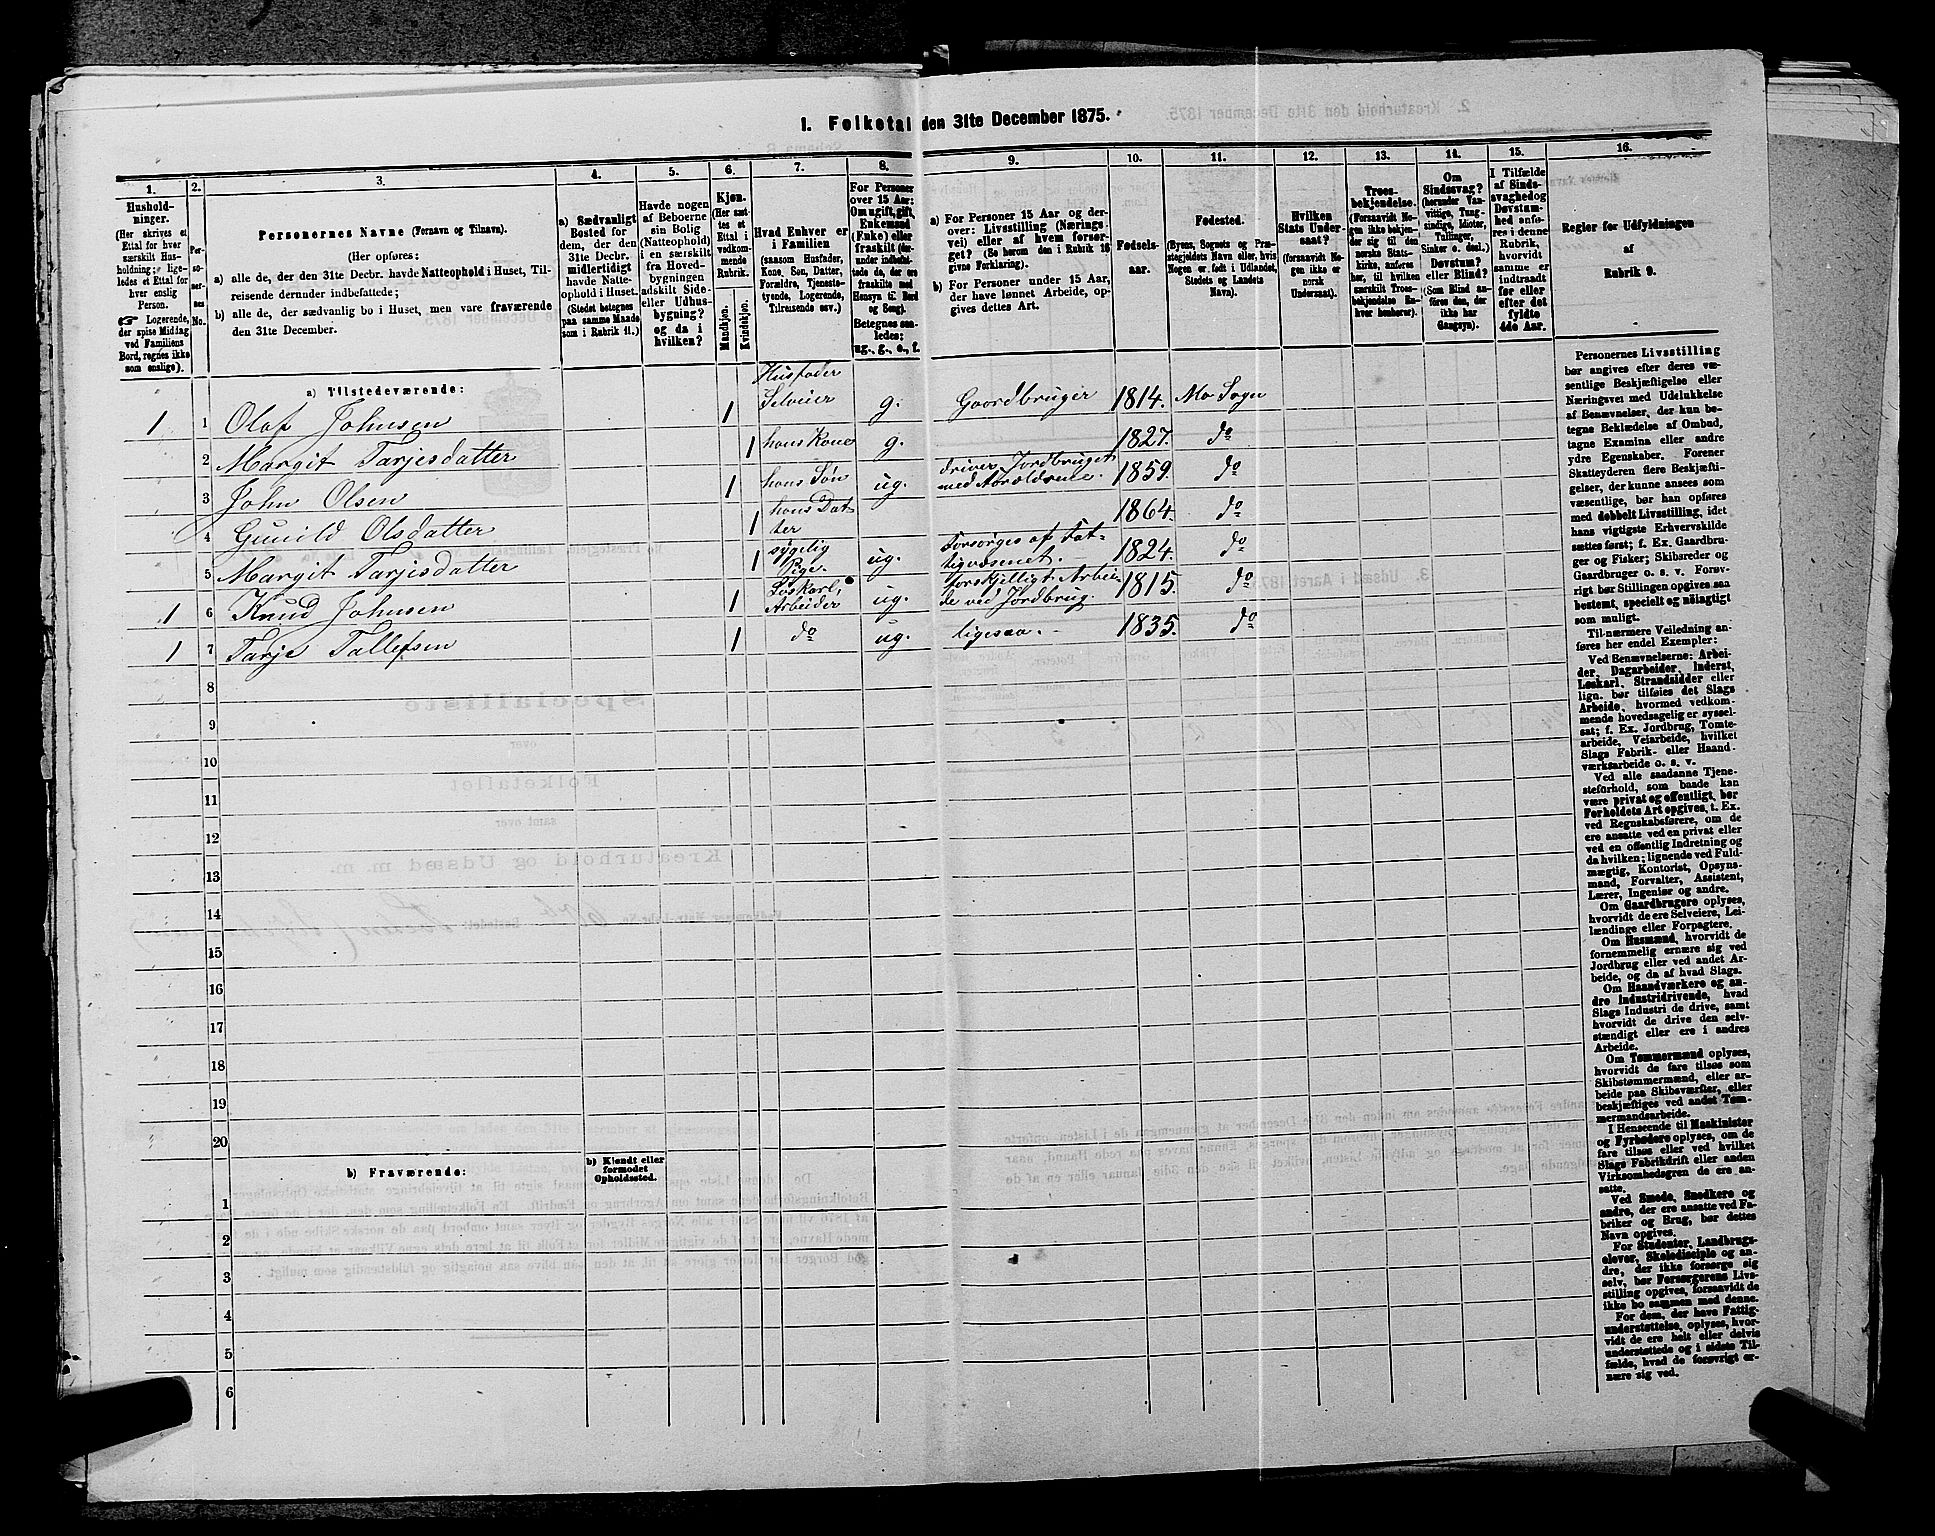 1. Folketal den 31te December 1875.
1.
2.
3.
4.
5.
6.
7.
8.
9.
10.
11.
12.
13.
14.
15.
16.
Hushold-
ninger.
(Her skrives et
Ettal for hver
særskilt Hus-
holdning; lige-
ledes et Ettal for
hver enslig
Person.
☞ Logerende,
der spise Middag
ved Familiens
Bord, regnes ikke
som enslige).
Per-
so-
ner-
nes
No.
Personernes Navne (Fornavn og Tilnavn).
(Her opføres:
a) alle de, der den 31te Decbr. havde Natteophold i Huset, Til-
reisende derunder indbefattede;
b) alle de, der sædvanlig bo i Huset, men vare fraværende
den 31te December.
a) Sædvanligt
Bosted for
dem, der den
31te Decbr.
midlertidigt
havde Natte-
ophold i Huset.
(Stedet betegnes
paa samme Maade
som i Rubrik 11.)
Havde nogen
af Beboerne
sin Bolig
(Natteophold)
i en særskilt
fra Hoved-
bygningen
adskilt Side-
eller Udhus-
bygning?
og da i
hvilken?
Kjøn.
(Her sæt-
tes et
Ettal i
vedkom-
mende
Rubrik.
Mandkjøn.
Kvindekjøn.
Hvad Enhver er
i Familien
(saasom Husfader,
Kone, Søn, Datter,
Forældre, Tjeneste-
tyende, Logerende,
Tilreisende osv.)
For Personer
over 15 Aar:
Om ugift, gift,
Enkemand
(Enke) eller
fraskilt (der-
under indbefat-
tede de, der ere
fraskilte med
Hensyn til Bord
og Seng).
Betegnes saa-
ledes:
ug., g., e., f.
a) For Personer 15 Aar og der-
over: Livsstilling (Nærings-
vei) eller af hvem forsør-
get? (Se herom den i Rubrik 16
givne Forklaring).
b) For Personer under 15 Aar,
der have lønnet Arbeide, op-
gives dettes Art.
Fødsels-
aar.
Fødested.
(Byens, Sognets og Præ-
stegjeldets Navn eller, hvis
Nogen er født i Udlandet,
Stedets og Landets
Navn).
Hvilken
Stats Under-
saat?
(forsaavidt No-
gen ikke er
norsk
Undersaat).
Troes-
bekjendelse.
(Forsaavidt No-
gen ikke bekjen-
der sig til den
norske Stats-
kirke, anføres
her, til hvilken
særskilt Troes-
bekjendelse En-
hver henhører).
Om
Sindssvag?
(herunder Van-
vittige, Tung-
sindige, Idioter,
Tullinger,
Sinker o. desl.)
Døvstum?
eller Blind?
(Som Blind an-
føres den, der
ikke har
Gangsyn).
I Tilfælde
af Sinds-
svaghed og
Døvstum-
hed anfø-
res i denne
Rubrik,
hvorvidt
samme er
indtraadt
før eller
efter det
fyldte
4de Aar.
Regler for Udfyldningen
af
Rubrik 9.
a) Tilstedeværende:
1 1 Olaf Johnsen 1 Husfader Selveier g. Gaardbruger 1814. Mo Sogn
2 Margit Tarjesdatter 1 hans Kone g. 1827. do
3 John Olsen 1 hans Søn ug. driver Jordbruget med Forældrene. 1859. do
4 Gunild Olsdatter 1 hans Datter 1864. do
5 Margit Tarjesdatter 1 sygelig Pige. ug. Forsørges af Fattigvæsenet. 1824. do
1 6 Knud Johnsen 1 Løskarl, Arbeider ug. forskjelligt Arbeide ved Jordbrug. 1815. do
1 7 Tarje Tallefsen 1 do ug. ligesaa. 1835. do
8
9
10
11
12
13
14
15
16
17
18
19
20
b) Fraværende:
b) Kjendt eller
formodet
Opholdssted.
1
2
3
4
5
6
Personernes Livsstilling
bør angives efter deres væ-
sentlige Beskjæftigelse eller
Næringsvei med Udelukkelse
af Benævnelser, der kun be-
tegne Beklædelse af Ombud,
tagne Examina eller andre
ydre Egenskaber. Forener
Skatteyderen flere Beskjæfti-
gelser, der kunne ansees som
væsentlige, bør han opføres
med dobbelt Livsstilling, idet
hans vigtigste Erhvervskilde
sættes først; f. Ex. Gaardbru-
ger og Fisker; Skibsreder og
Gaardbruger o. s. v. Forøv-
rigt bør Stillingen opgives saa
bestemt, specielt og nøiagtigt
som muligt.
Til nærmere Veiledning an-
føres her endel Exempler:
Ved Benævnelserne: Arbei-
der, Dagarbeider, Inderst,
Løskarl, Strandsidder eller
lign. bør tilføies det Slags
Arbeide, hvormed vedkom-
mende hovedsagelig er syssel-
sat; f. Ex. Jordbrug, Tomte-
arbeide, Veiarbeide, hvilket
Slags Fabrik- eller Haand-
værksarbeide o. s. v.
Ved alle saadanne Tjene-
steforhold, som baade kan
være privat og offentligt, bør
Forholdets Art opgives, t. Ex.
ved Regnskabsførere, om de
ere ansatte ved en privat eller
ved en offentlig Indretning og
da hvilken; lignende ved Fuld-
mægtig, Kontorist, Opsyns-
mand, Forvalter, Assistent,
Lærer, Ingeniør og andre.
Om Gaardbrugere oplyses,
hvorvidt de ere Selveiere, Lei-
lændinge eller Forpagtere.
Om Husmænd, hvorvidt de
fornemmelig ernære sig ved
Jordbrug eller ved andet Ar-
beide, og da af hvad Slags.
Om Haandværkere og an-
dre Industridrivende, hvad
Slags Industri de drive, samt
hvorvidt de drive den selv-
stændigt eller ere i andres
Arbeide.
Om Tømmermænd oplyses,
hvorvidt de fare tilsøs som
Skibstømmermænd, eller ar-
beide paa Skibsværfter, eller
beskjæftiges ved andet Tøm-
mermandsarbeide.
I Henseende til Maskinister
og Fyrbødere oplyses, om de
fare tilsøs eller ved hvilket
Slags Fabrikdrift eller anden
Virksomhedsgren de ere an-
satte.
Ved Smede, Snedkere og
andre, der ere ansatte ved Fa-
briker og Brug, bør dettes
Navn opgives.
For Studenter, Landbrugs-
elever, Skoledisciple og an-
dre, der ikke forsørge sig
selv, bør Forsørgerens Livs-
stilling opgives, forsaavidt de
ikke bo sammen med denne.
For dem, der have Fattig-
understøttelse, oplyses, hvor-
vidt de ere helt eller delvis
understøttede og i sidste Til-
fælde, hvad de forøvrigt er-
nære sig ved.